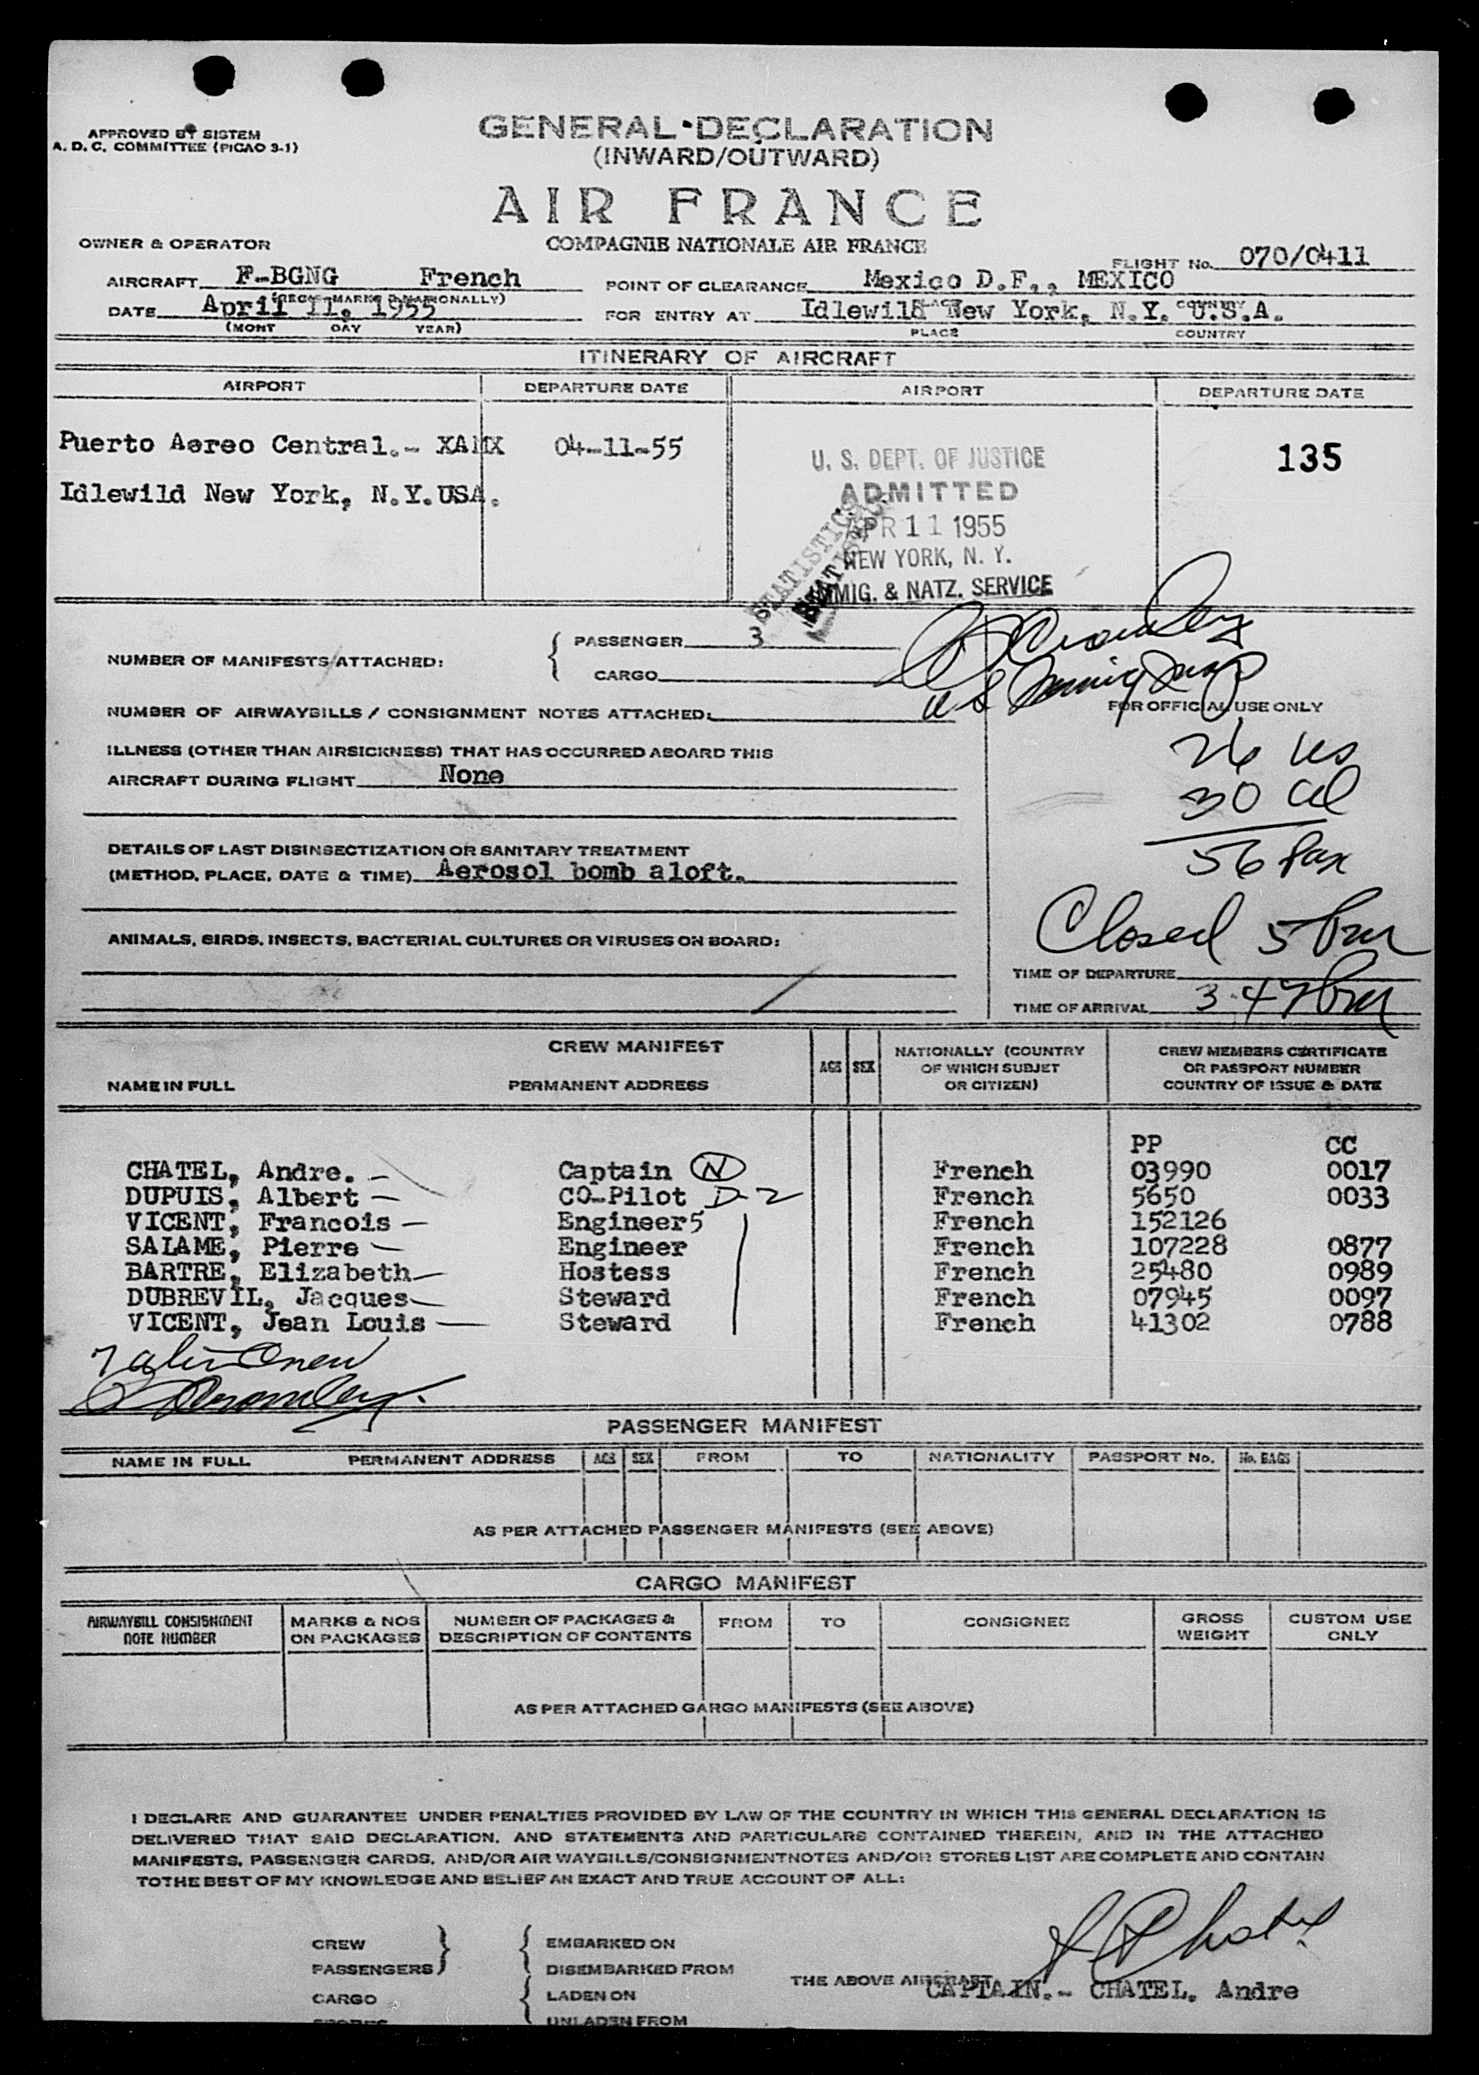 APPROVED BY SISTEM
A. D. C. COMMITTEE (PICAO 3-1)
GENERAL DECLARATION
(INWARD/OUTWARD)
AIR FRANCE
COMPAGNIE NATIONALE AIR FRANCE
OWNER & OPERATOR
FLIGHT No. 070/0411
AIRCRAFT F-BGNG French
POINT OF CLEARANCE Mexico D.F., MEXICO
DATE April 11, 1955
(MONT DAY YEAR)
FOR ENTRY AT Idlewild New York, N.Y. U.S.A.
PLACE COUNTRY
ITINERARY OF AIRCRAFT
AIRPORT DEPARTURE DATE AIRPORT DEPARTURE DATE
Puerto Aereo Central.- XAMX 04-11-55
Idlewild New York, N.Y.USA.
135
U. S. DEPT. OF JUSTICE
ADMITTED
APR 11 1955
NEW YORK, N. Y.
IMMIG. & NATZ. SERVICE
STATISTICS
NUMBER OF MANIFESTS ATTACHED:
PASSENGER 3
CARGO
NUMBER OF AIRWAYBILLS / CONSIGNMENT NOTES ATTACHED:
FOR OFFICIAL USE ONLY
ILLNESS (OTHER THAN AIRSICKNESS) THAT HAS OCCURRED ABOARD THIS
AIRCRAFT DURING FLIGHT None
26 us
30 al
56 Pax
DETAILS OF LAST DISINSECTIZATION OR SANITARY TREATMENT
(METHOD, PLACE, DATE & TIME) Aerosol bomb aloft.
Closed 5 pm
ANIMALS, BIRDS, INSECTS, BACTERIAL CULTURES OR VIRUSES ON BOARD:
TIME OF DEPARTURE
TIME OF ARRIVAL 3-47 pm
CREW MANIFEST
NAME IN FULL PERMANENT ADDRESS AGE SEX
NATIONALLY (COUNTRY
OF WHICH SUBJET
OR CITIZEN)
CREW MEMBERS CERTIFICATE
OR PASSPORT NUMBER
COUNTRY OF ISSUE & DATE
PP CC
CHATEL, Andre. Captain N French 03990 0017
DUPUIS, Albert CO-Pilot D-2 French 5650 0033
VICENT, Francois Engineer 5 French 152126
SALAME, Pierre Engineer French 107228 0877
BARTRE, Elizabeth Hostess French 25480 0989
DUBREVIL, Jacques Steward French 07945 0097
VICENT, Jean Louis Steward French 41302 0788
PASSENGER MANIFEST
NAME IN FULL PERMANENT ADDRESS AGE SEX FROM TO NATIONALITY PASSPORT No. No. BAGS
AS PER ATTACHED PASSENGER MANIFESTS (SEE ABOVE)
CARGO MANIFEST
AIRWAYBILL CONSIGNMENT
NOTE NUMBER
MARKS & NOS
ON PACKAGES
NUMBER OF PACKAGES &
DESCRIPTION OF CONTENTS
FROM TO CONSIGNEE
GROSS
WEIGHT
CUSTOM USE
ONLY
AS PER ATTACHED CARGO MANIFESTS (SEE ABOVE)
I DECLARE AND GUARANTEE UNDER PENALTIES PROVIDED BY LAW OF THE COUNTRY IN WHICH THIS GENERAL DECLARATION IS
DELIVERED THAT SAID DECLARATION, AND STATEMENTS AND PARTICULARS CONTAINED THEREIN, AND IN THE ATTACHED
MANIFESTS, PASSENGER CARDS, AND/OR AIR WAYBILLS/CONSIGNMENTNOTES AND/OR STORES LIST ARE COMPLETE AND CONTAIN
TOTHE BEST OF MY KNOWLEDGE AND BELIEF AN EXACT AND TRUE ACCOUNT OF ALL:
CREW
PASSENGERS
CARGO
STORES
EMBARKED ON
DISEMBARKED FROM
LADEN ON
UNLADEN FROM
THE ABOVE AIRCRAFT
CAPTAIN.- CHATEL, Andre